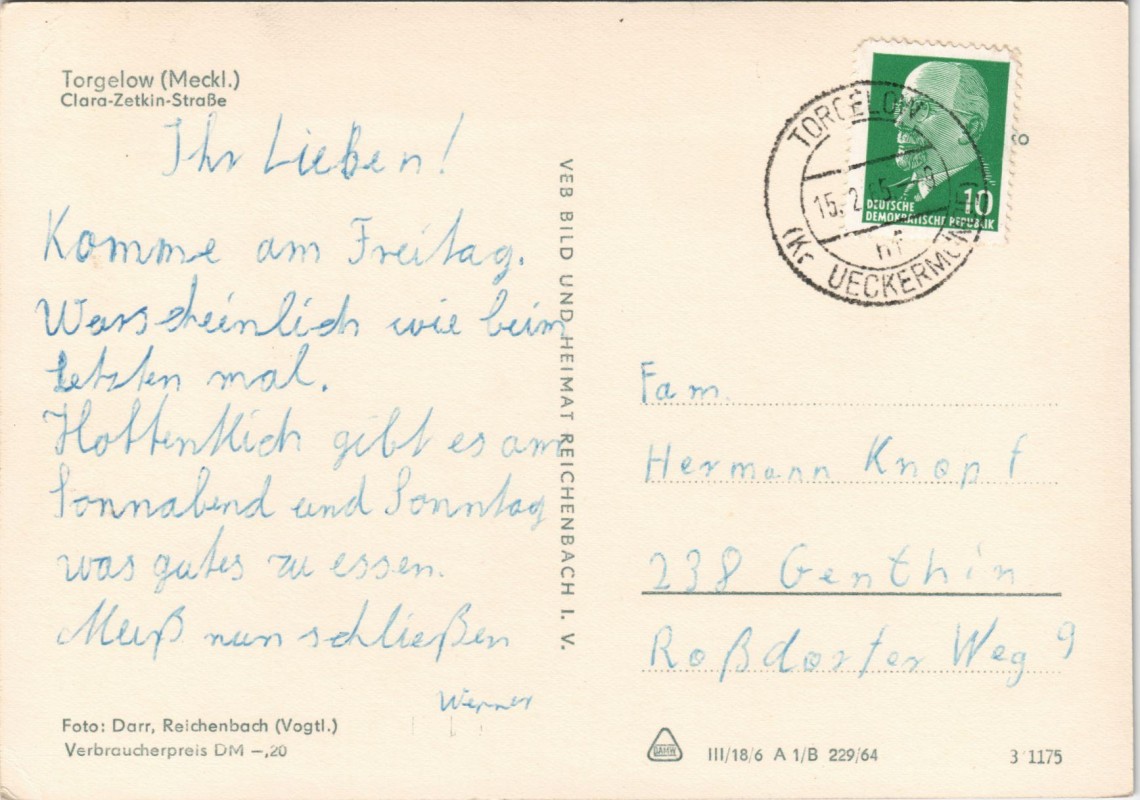 Torgelow (Meckl.)
Clara-Zetkin-Straße
Ihr Lieben!
Komme am Freitag.
Warscheinlich wie beim
letzten mal.
Hoffentlich gibt es am
Sonnabend und Sonntag
was gutes zu essen.
Muß nun schließen
Werner
Foto: Darr, Reichenbach (Vogtl.)
Verbraucherpreis DM –,20
VEB BILD UND HEIMAT REICHENBACH I. V.
TORGELOW
15. 2. 65
(Kr UECKERMÜN
DEUTSCHE
DEMOKRATISCHE REPUBLIK
10
Fam.
Hermann Knopf
238 Genthin
Roßdorfer Weg 9
III/18/6 A 1/B 229/64
3 1175